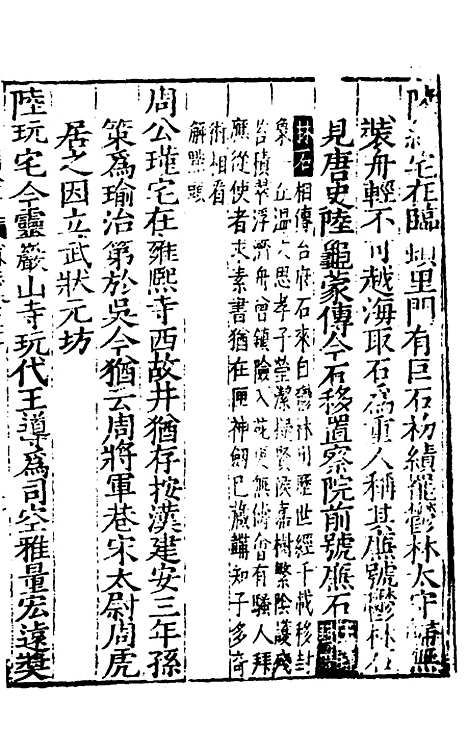 陸績宅在臨頓里門有巨石初績罷鬱林太守歸無
裝舟輕不可越海取石爲重人稱其廉號鬱林石
見唐史陸龜蒙傳今石移置察院前號廉石
林石相傳台府石來自鬱林川歷世經千載移封
象一丘溫人思孝子塋潔操賢侯嘉樹繁陰護殘
苔積翠浮濟舟曾鎮險入苑更無儔曾有騷人拜
應從使者求素書猶在匣神劒已藏韝知子多奇
術相看
解點頭
周公瑾宅在雍熙寺西故井猶存按漢建安三年孫
策爲瑜治第於吳今猶云周將軍巷宋太尉周虎
居之因立武狀元坊
陸玩宅今靈巖山寺玩代王導爲司空雅量宏遠奬